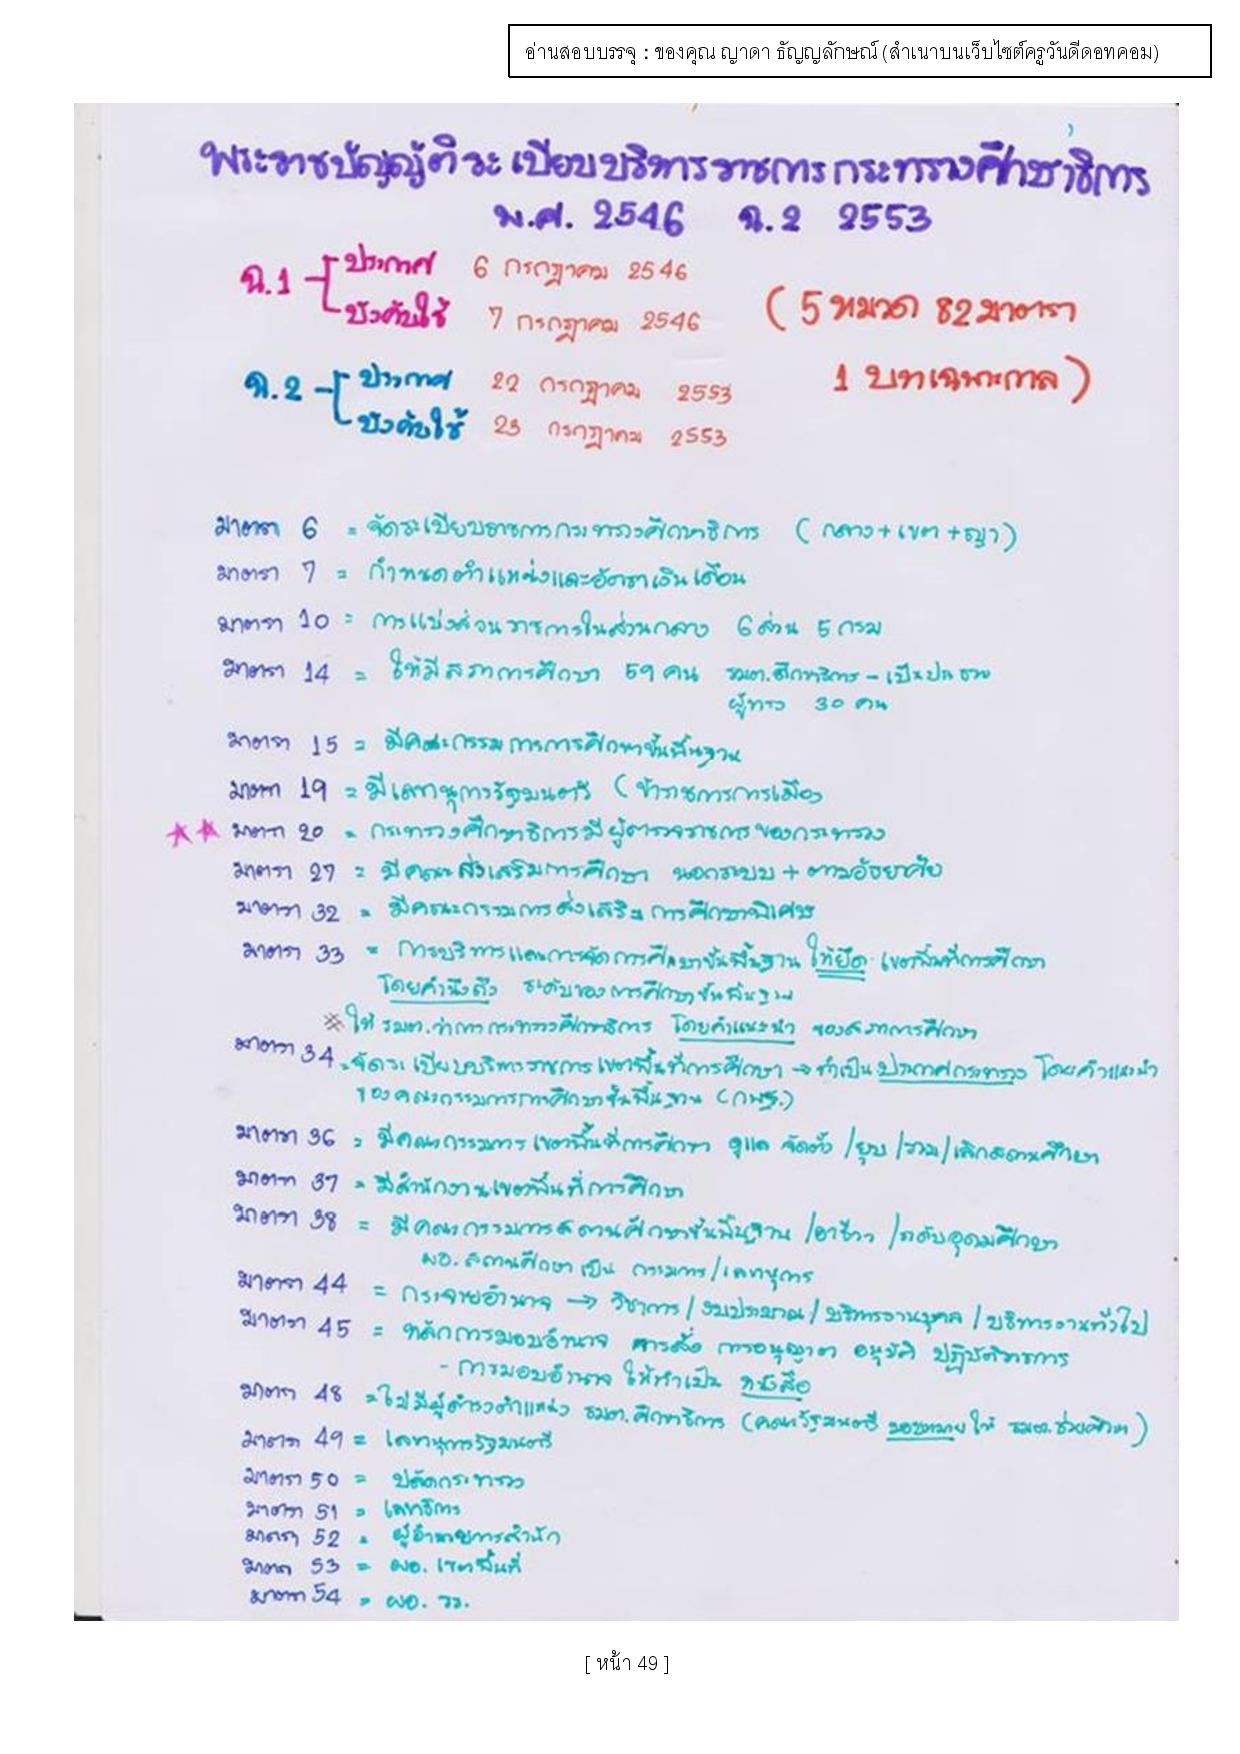 อ่านสอบบรรจุ : ของคุณ ญาดา ธัญญลักษณ์ (สำเนาบนเว็บไซต์ครูวันดีดอทคอม)
พระราชบัญญัติระเบียบบริหารราชการกระทรวงศึกษาธิการ
พ.ศ. 2546 ฉ.2 2553
ฉ.1 ประกาศ 6 กรกฎาคม 2546
บังคับใช้ 7 กรกฎาคม 2546
(5 หมวด 82 มาตรา
1 บทเฉพาะกาล)
ฉ.2 ประกาศ 22 กรกฎาคม 2553
บังคับใช้ 23 กรกฎาคม 2553
มาตรา 6 = จัดระเบียบราชการกระทรวงศึกษาธิการ (กลาง+เขต+ญา)
มาตรา 7 = กำหนดตำแหน่งและอัตราเงินเดือน
มาตรา 10 = การแบ่งส่วนราชการในส่วนกลาง 6 ส่วน 5 กรม
มาตรา 14 = ให้มีสภาการศึกษา 59 คน รมต.ศึกษาธิการ - เป็นประธาน
ผู้ทรง 30 คน
มาตรา 15 = มีคณะกรรมการการศึกษาขั้นพื้นฐาน
มาตรา 19 = มีเลขานุการรัฐมนตรี (ข้าราชการการเมือง
มาตรา 20 = กระทรวงศึกษาธิการมีผู้ตรวจราชการของกระทรวง
มาตรา 27 = มีคณะส่งเสริมการศึกษา นอกระบบ + ตามอัธยาศัย
มาตรา 32 = มีคณะกรรมการส่งเสริมการศึกษาพิเศษ
มาตรา 33 = การบริหารและการจัดการศึกษาขั้นพื้นฐาน ให้ยึด เขตพื้นที่การศึกษา
โดยคำนึงถึง ระดับของการศึกษาขั้นพื้นฐาน
※ ให้ รมต.ว่าการกระทรวงศึกษาธิการ โดยคำแนะนำ ของสภาการศึกษา
มาตรา 34 = จัดระเบียบบริหารราชการเขตพื้นที่การศึกษา → ทำเป็น ประกาศกระทรวง โดยคำแนะนำ
ของคณะกรรมการการศึกษาขั้นพื้นฐาน (กพฐ.)
มาตรา 36 = มีคณะกรรมการเขตพื้นที่การศึกษา ดูแล จัดตั้ง /ยุบ /รวม/เลิกสถานศึกษา
มาตรา 37 = มีสำนักงานเขตพื้นที่การศึกษา
มาตรา 38 = มีคณะกรรมการสถานศึกษาขั้นพื้นฐาน /อาชีวะ /ระดับอุดมศึกษา
ผอ. สถานศึกษา เป็น กรรมการ/เลขานุการ
มาตรา 44 = กระจายอำนาจ → วิชาการ/งบประมาณ/บริหารงานบุคคล /บริหารงานทั่วไป
มาตรา 45 = หลักการมอบอำนาจ การสั่ง การอนุญาต อนุมัติ ปฏิบัติราชการ
- การมอบอำนาจ ให้ทำเป็น หนังสือ
มาตรา 48 = ไม่มีผู้ดำรงตำแหน่ง รมต.ศึกษาธิการ (คณะรัฐมนตรี มอบหมายให้ รมต.ช่วยศึกษา)
มาตรา 49 = เลขานุการรัฐมนตรี
มาตรา 50 = ปลัดกระทรวง
มาตรา 51 = เลขาธิการ
มาตรา 52 = ผู้อำนวยการสำนัก
มาตรา 53 = ผอ. เขตพื้นที่
มาตรา 54 = ผอ. รร.
[ หน้า 49 ]